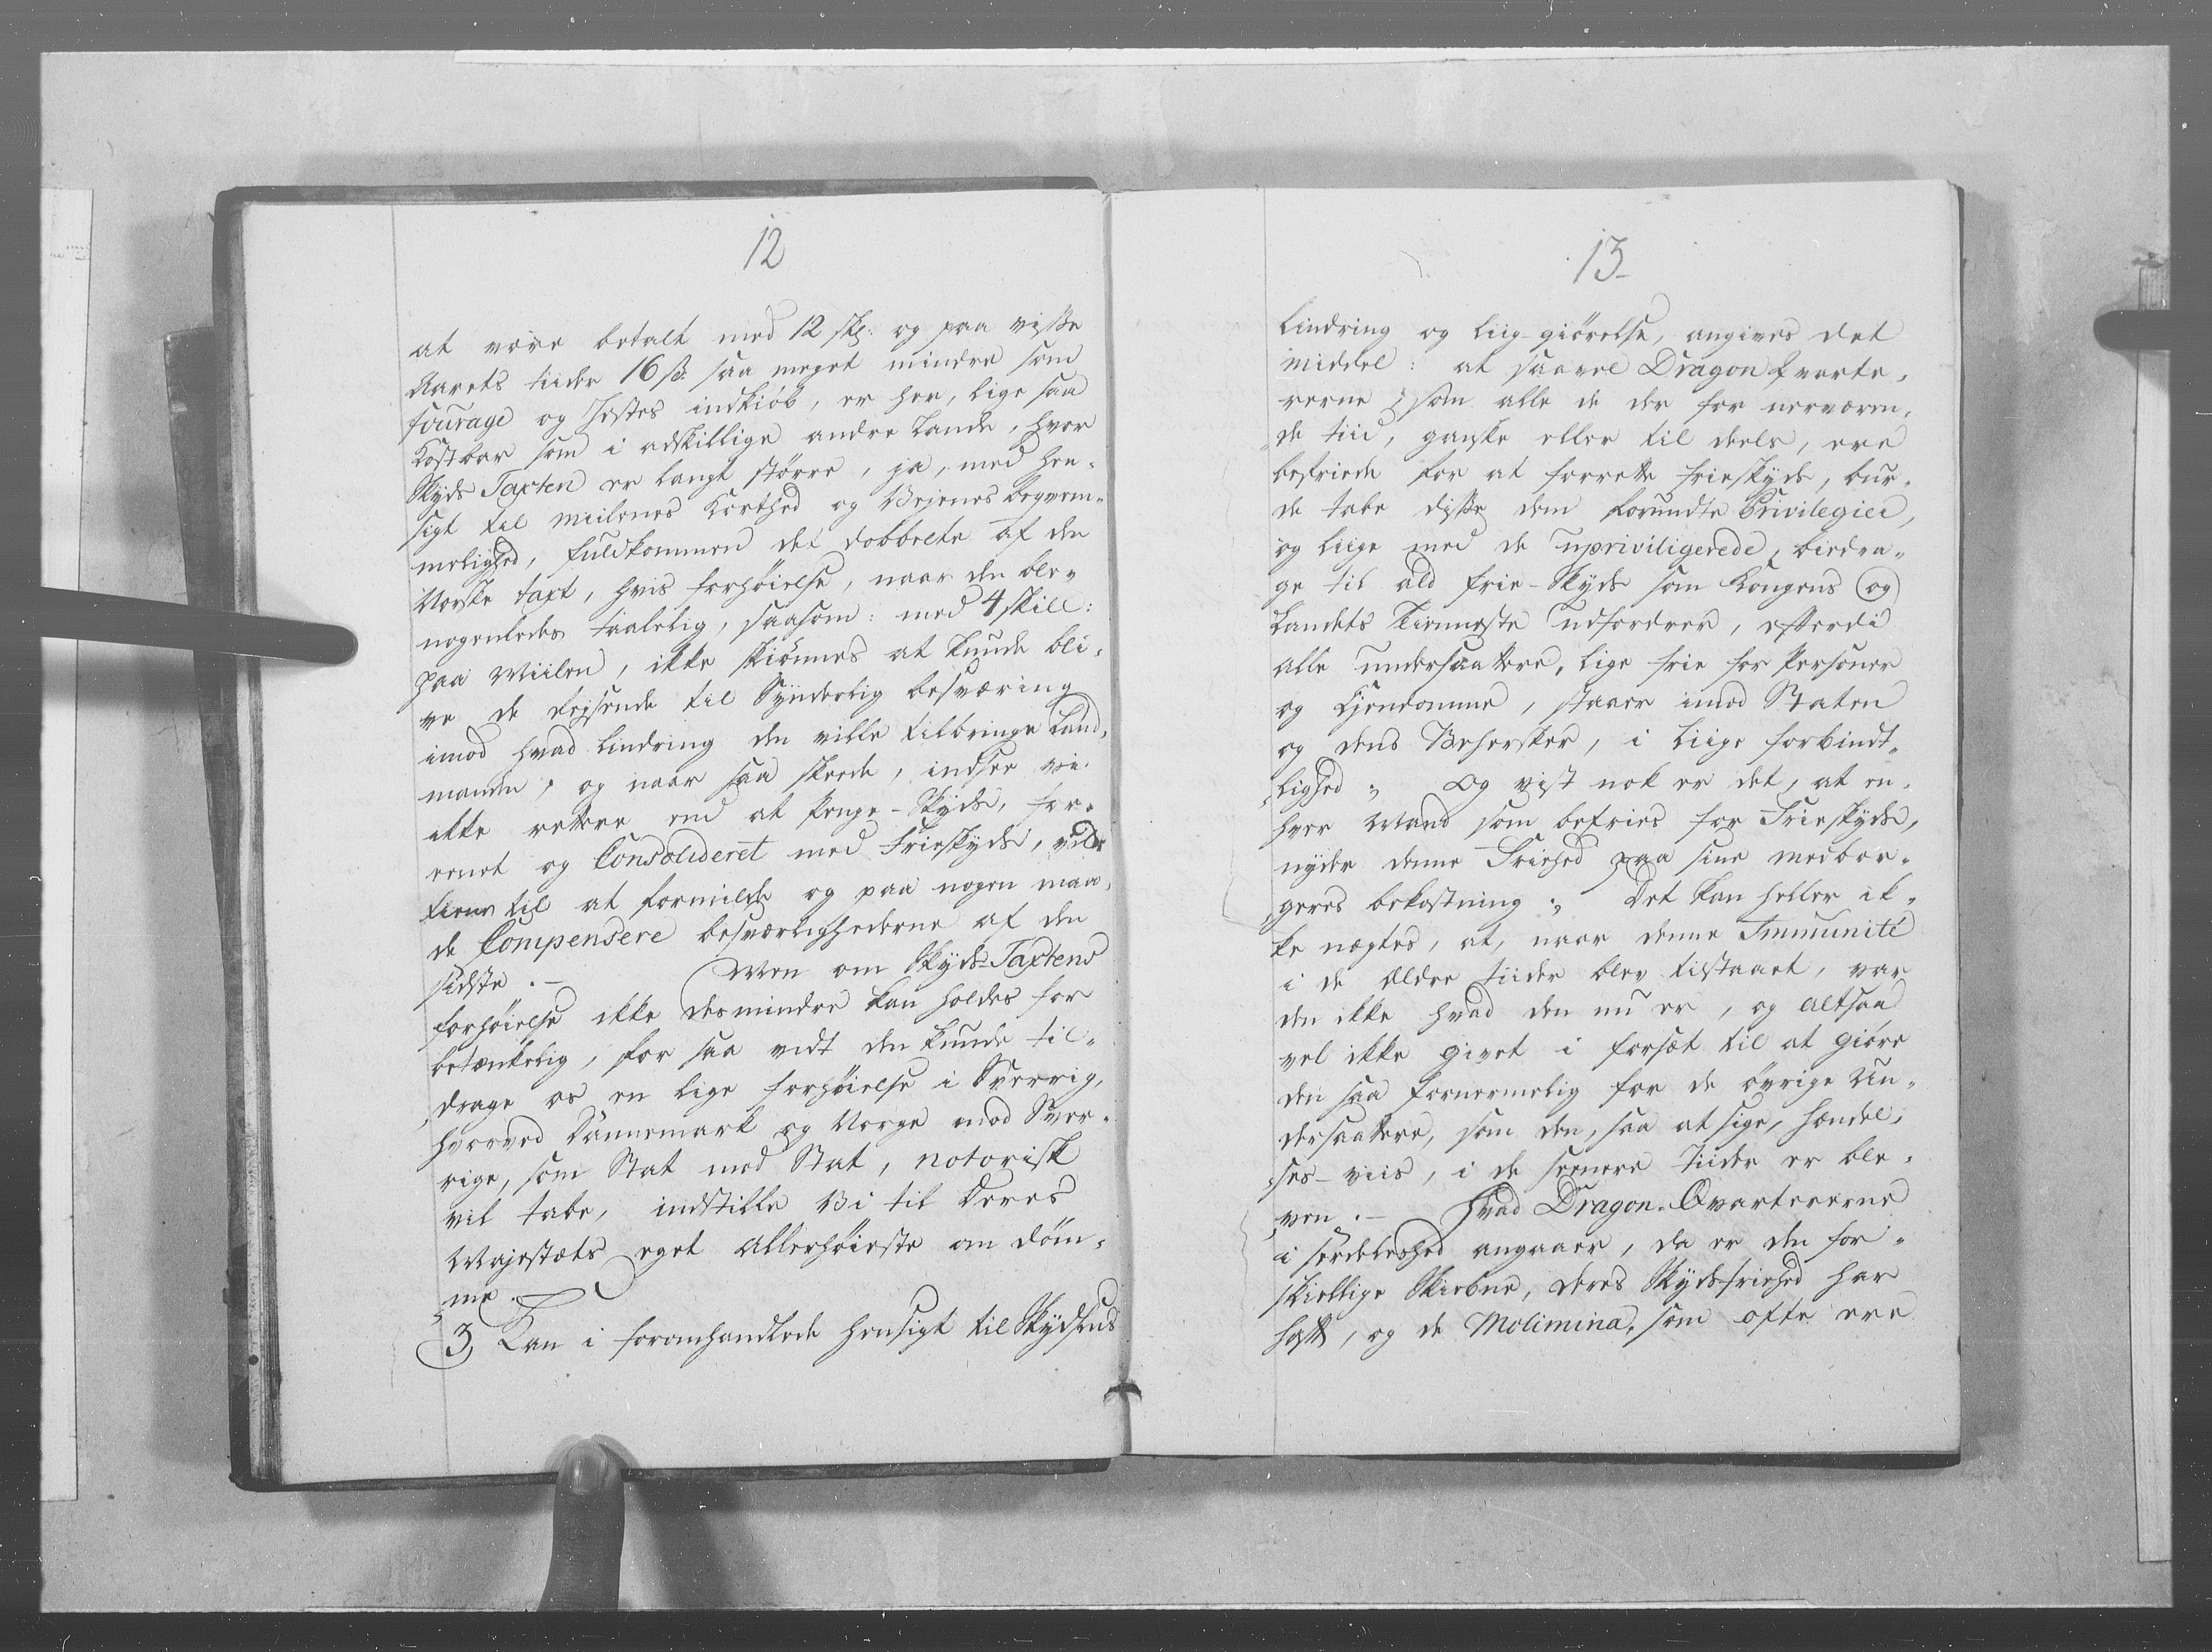 12
at være betalt med 12 skl: og paa visse
Aarets tiider 16 s. saa meget mindre som
fourage og Hestes indkiøb, er her, lige saa
Kostbar som i adskillige andre Lande, hvor
Skyds Taxten er langt større, ja, med hen-
sigt til miilenes Korthed og Vejenes beqvem-
melighed, fuldkommen det dobbelte af den
Norske taxt, hvis forhøielse, naar den blev
nogenledes taalelig, saasom: med 4 skill:
paa Miilen, ikke skiønnes at kunde bli-
ve de Rejsende til Synderlig besværing
imod hvad Lindring den ville tilbringe Land-
manden, og naar saa skeede, indsee vi
ikke rettere end at Penge-Skyds, for-
eenet og Consolideret med Frieskyds, vilde
tiene til at formilde og paa nogen maa-
de Compensere besværlighederne af den
sidste.- Men om Skyds-Taxtens
forhøielse ikke desmindre kan holdes for
betænkelig, for saa vidt den kunde til-
drage os en lige forhøielse i Sverrig,
hvorved Dannemark og Norge mod Sver-
rige, som Stat mod Stat, notorisk
vil tabe, indstille Vi til Deres
Majestæts eget Allerhøieste om døm-
me.
3, Kan i foromhandlede hensigt til Skydsens
13
Lindring og Liig-giørelse, angives det
middel: at saavel Dragon Qvarte-
rerne, som alle de der for nerværen-
de tiid, ganske eller til deels, ere
befriede for at forrette frieskyds, bur-
de tabe disse dem forundte Privilegier,
og liige med de upriviligerede, bidra-
ge til ald frie-Skyds som Kongens og
Landets Tienneste udfordrer, efterdi
alle undersaattere, lige frie for Personer
og Ejendomme, staaer imod Staten
og dens Behersker, i Liige forbindt-
lighed, Og vist nok er det, at en-
hver Mand som befries for Frieskyds,
nyder denne Friehed paa sine medbor-
geres bekostning, Det kan heller ik-
ke nægtes, at, naar denne Immunité
i de Eldre tiider blev tilstaaet, var
den ikke hvad den nu er, og altsaa
vel ikke givet i forsæt til at giøre
den saa fornermelig for de øvrige Un-
dersaattere, som den, saa at sige, hændel-
ses-viis, i de seenere Tiider er ble-
ven.- Hvad Dragon-Qvartererne
i serdeleshed angaaer, da er den for-
skiellige Skiebne, deres Skydsfriehed har
hafft, og de Molimina, som ofte ere